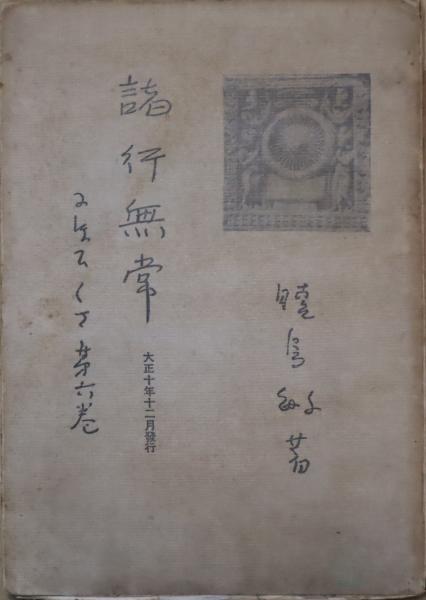 曉烏敏著
諸行無常
大正十年十二月發行
にほひくさ第六巻